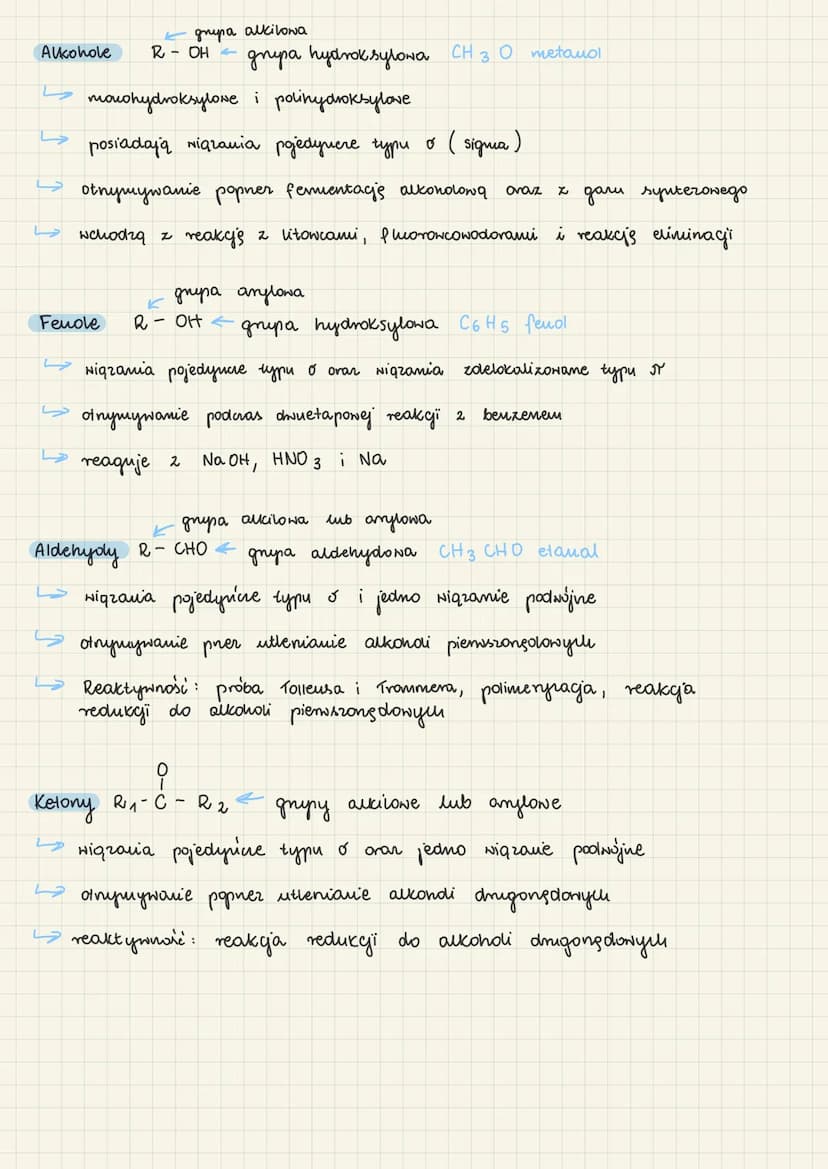 grupa alkilowa
Alkohole R - OH ← grupa hydroksylowa CH3O metanol
↳ monohydroksylowe i polihydroksylowe
↳ posiadają wiązania pojedyncze typu σ (sigma)
↳ otrzymywanie poprzez fermentację alkoholową oraz z gazu syntezowego
↳ wchodzą z reakcję z litowcami, fluorowcowodorami i reakcję eliminacji
grupa arylowa
Fenole R - OH ← grupa hydroksylowa C6H5 fenol
↳ wiązania pojedyncze typu σ oraz wiązania zdelokalizowane typu π
↳ otrzymywanie podczas dwuetapowej reakcji z benzenem
↳ reaguje z NaOH, HNO3 i Na
grupa alkilowa lub arylowa
Aldehydy R - CHO ← grupa aldehydowa CH3CHO etanal
↳ wiązania pojedyńcze typu σ i jedno wiązanie podwójne
↳ otrzymywanie przez utlenianie alkoholi pierwszorzędowych
↳ Reaktywność: próba Tollensa i Trommera, polimeryzacja, reakcja
redukcji do alkoholi pierwszorzędowych
O
Ketony R1 - C - R2 ← grupy alkilowe lub arylowe
↳ wiązania pojedyńcze typu σ oraz jedno wiązanie podwójne
↳ otrzymywanie poprzez utlenianie alkoholi drugorzędowych
↳ reaktywność: reakcja redukcji do alkoholi drugorzędowych